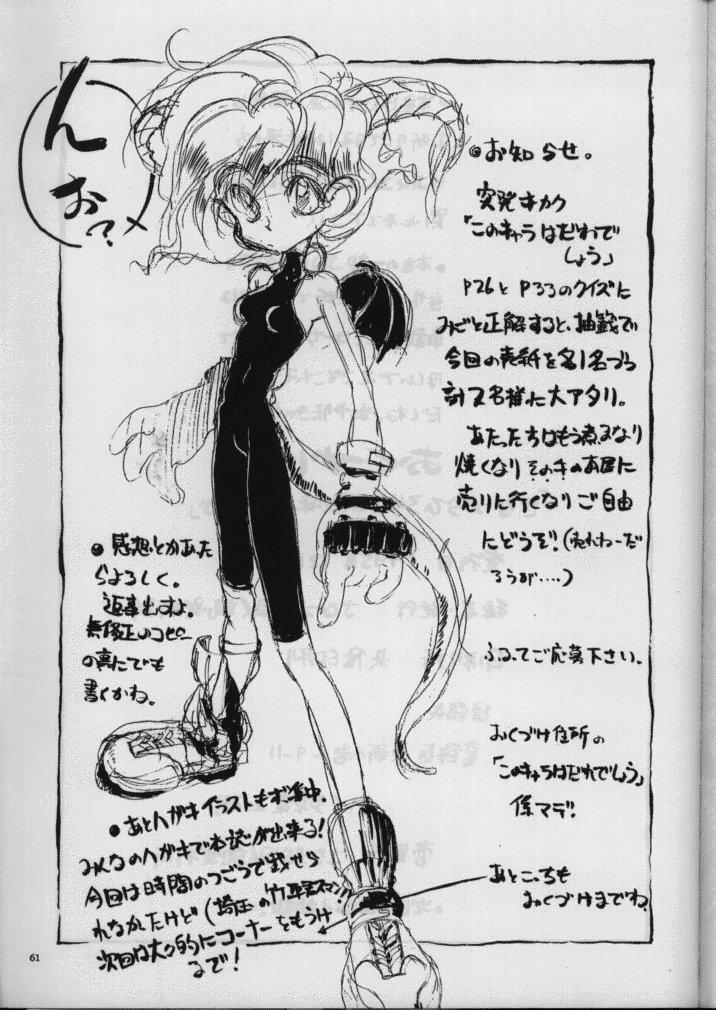 ん
お?
●お知らせ。
突発キカク
「このキャラはだれで
しょう」
P26とP33のクイズに
みごと正解すると、抽籤で
今回の表紙を各1名づつ
計2名様に大アタリ。
あたった方はもう煮るなり
焼くなりその手のお店に
売りに行くなりご自由
にどうぞ!(売れねーだ
ろうが....)
ふるってご応募下さい。
おくづけ住所の
「このキャラはだれでしょう」
係マデ!
あとこっちも
おくづけまでね。
●感想とかあた
らよろしく。
返事出すよ。
無修正のコピー
の裏にでも
書くかね。
●あとハガキイラストもボ集中.
みんなのハガキで本誌が出来る!
今回は時間のつごうで載せら
れなかたけど(埼玉の竹 スマン!!)
次回は大々的にコーナーをもうけ
るで!
61